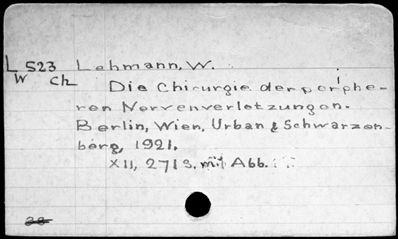 L 523 Lehmann, W.
W Ch
Die Chirurgie der periphe-
ren Nervenverletzungen.
Berlin, Wien, Urban & Schwarzen-
berg, 1921.
XII, 271 S. mit Abb.